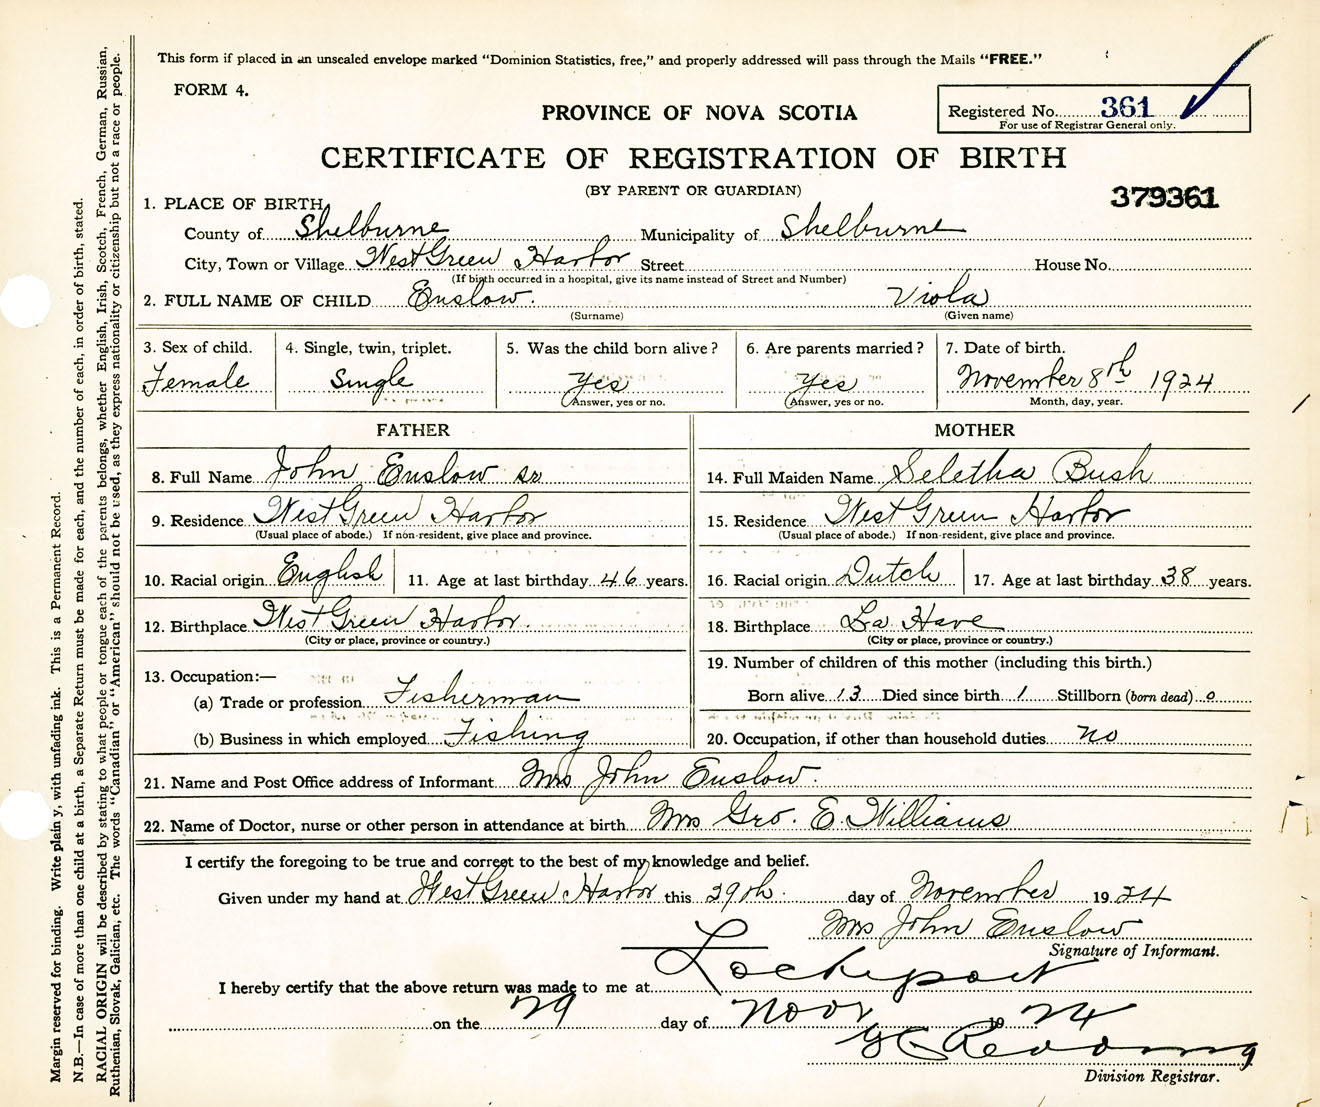 This form if placed in an unsealed envelope marked "Dominion Statistics, free," and properly addressed will pass through the Mails "FREE."
FORM 4.
PROVINCE OF NOVA SCOTIA
Registered No. 361
For use of Registrar General only.
CERTIFICATE OF REGISTRATION OF BIRTH
(BY PARENT OR GUARDIAN)
379361
1. PLACE OF BIRTH
County of Shelburne Municipality of Shelburne
City, Town or Village West Green Harbor Street House No.
(If birth occurred in a hospital, give its name instead of Street and Number)
2. FULL NAME OF CHILD Enslow. Viola
(Surname) (Given name)
3. Sex of child. 4. Single, twin, triplet. 5. Was the child born alive? 6. Are parents married? 7. Date of birth.
Female Single Yes Yes November 8th 1924
(Answer, yes or no. (Answer, yes or no. Month, day, year.
FATHER MOTHER
8. Full Name John Enslow sr 14. Full Maiden Name Seletha Bush
9. Residence West Green Harbor 15. Residence West Green Harbor
(Usual place of abode.) If non-resident, give place and province. (Usual place of abode.) If non-resident, give place and province.
10. Racial origin English 11. Age at last birthday 46 years. 16. Racial origin Dutch 17. Age at last birthday 38 years.
12. Birthplace West Green Harbor. 18. Birthplace La Have
(City or place, province or country.) (City or place, province or country.)
13. Occupation:— 19. Number of children of this mother (including this birth.)
(a) Trade or profession Fisherman Born alive 13 Died since birth 1 Stillborn (born dead) 0
(b) Business in which employed Fishing 20. Occupation, if other than household duties no
21. Name and Post Office address of Informant Mrs John Enslow.
22. Name of Doctor, nurse or other person in attendance at birth Mrs Geo. E. Williams
I certify the foregoing to be true and correct to the best of my knowledge and belief.
Given under my hand at West Green Harbor this 29th. day of November 1924
Mrs John Enslow
Signature of Informant.
I hereby certify that the above return was made to me at Lockeport
on the 29 day of Novr 19 24
Redding
Division Registrar.
Margin reserved for binding. Write plain y, with unfading ink. This is a Permanent Record.
N.B.—In case of more than one child at a birth, a Separate Return must be made for each, and the number of each, in order of birth, stated.
RACIAL ORIGIN will be described by stating to what people or tongue each of the parents belongs, whether English, Irish, Scotch, French, German, Russian,
Ruthenian, Slovak, Galician, etc. The words "Canadian" or "American" should not be used, as they express nationality or citizenship but not a race or people.